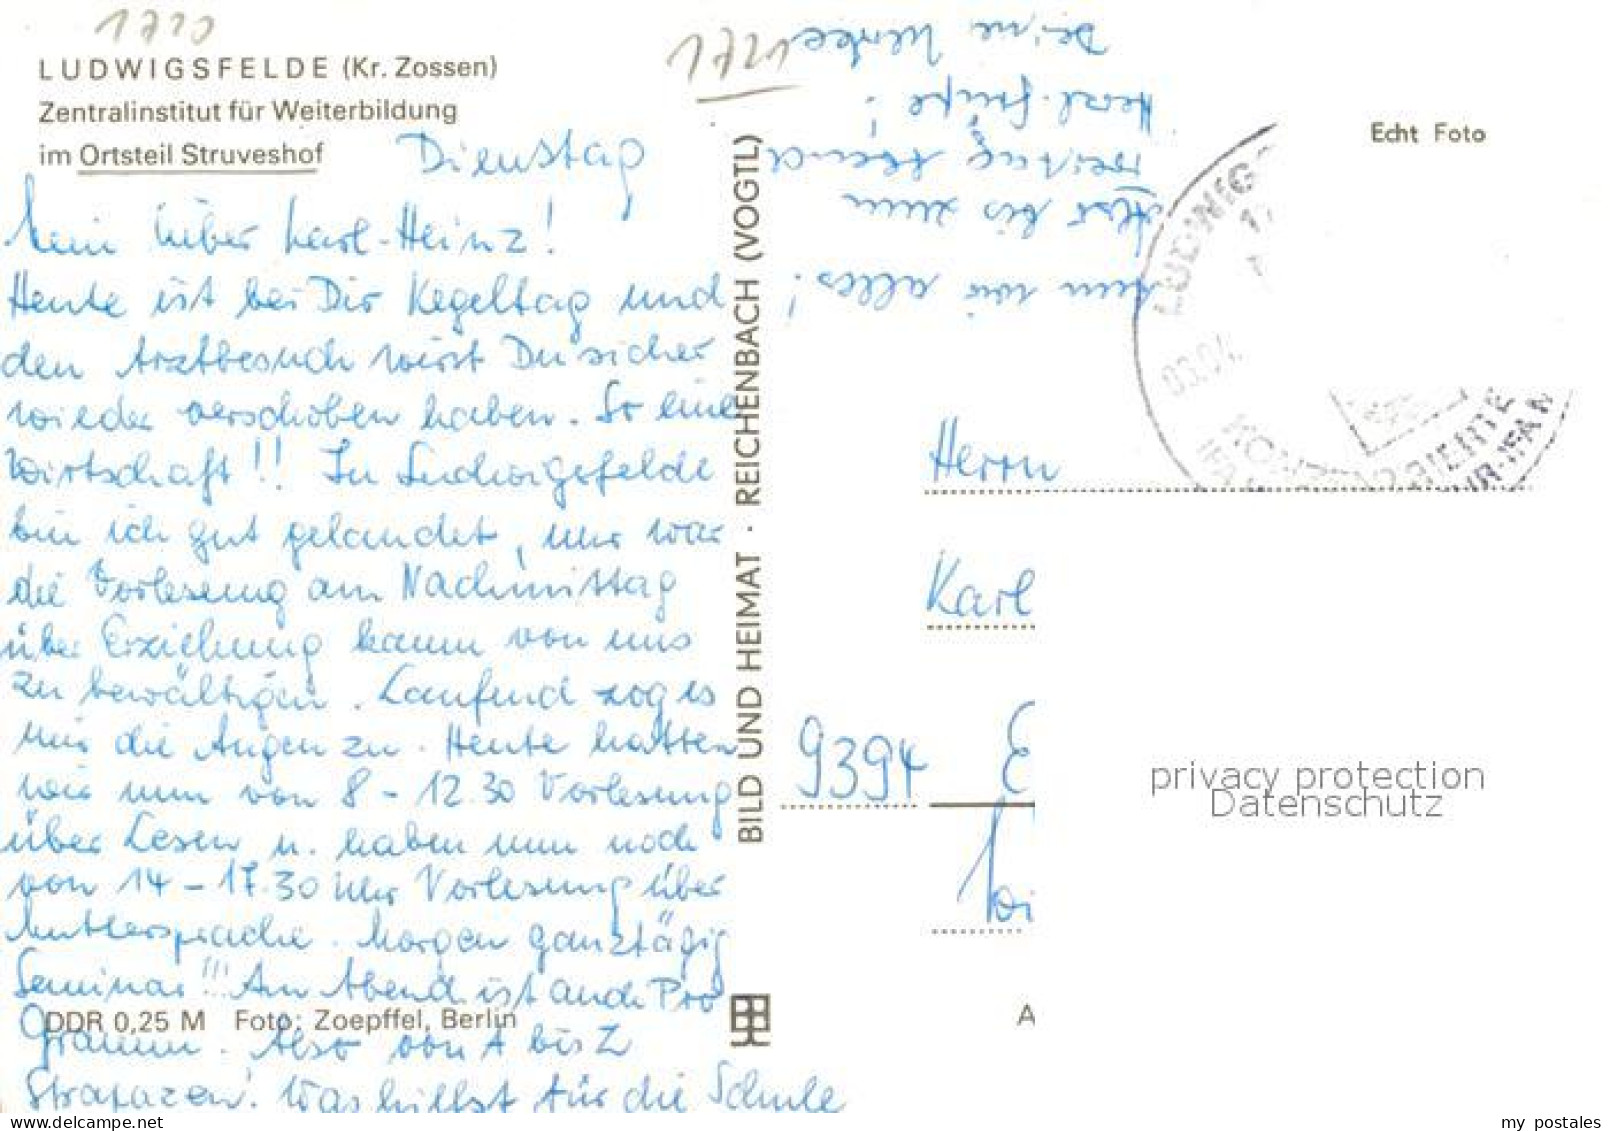 1720
LUDWIGSFELDE (Kr. Zossen)
Zentralinstitut für Weiterbildung
im Ortsteil Struveshof
Dienstag
Mein lieber Karl-Heinz!
Heute ist bei Dir Kegeltag und
den Arztbesuch wirst Du sicher
wieder verschoben haben. So eine
Wirtschaft!! In Ludwigsfelde
bin ich gut gelandet, nur war
die Vorlesung am Nachmittag
über Erziehung kaum von uns
zu bewältigen. Laufend zog es
mir die Augen zu. Heute hatten
wir nun von 8 - 12.30 Vorlesung
über Lesen u. haben nun noch
von 14 - 17.30 Uhr Vorlesung über
Muttersprache. Morgen ganztägig
Seminar!!! Am Abend ist auch Pro
gramm. Also von A bis Z
Strapazen! Was hilfst für die Schule
DDR 0,25 M Foto: Zoepffel, Berlin
BILD UND HEIMAT · REICHENBACH (VOGTL)
tun wir alles!
Also bis zum
Freitag Abend
Herzl. Grüße!
Deine
1271
Echt Foto
LUDWIGS
Herrn
Karl
9394 E
A
privacy protection
Datenschutz
my postales